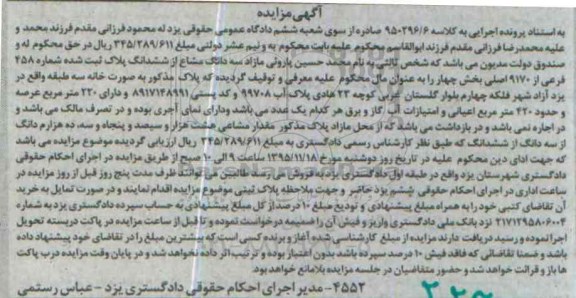 آگهی مزایده
به استناد پرونده اجرایی به کلاسه ۹۵۰۲۹۶/۶ صادره از سوی شعبه ششم دادگاه عمومی حقوقی یزد له محمود فرزانی مقدم فرزند محمد و
علیه محمدرضا فرزانی مقدم فرزند ابوالقاسم محکوم علیه بابت محکوم به و نیم عشر دولتی مبلغ ۳۴۵/۲۸۹/۶۱۱ ریال در حق محکوم له و
صندوق دولت مدیون می باشد که شخص ثالثی به نام محمد حسین پارونی مازاد سه دانگ مشاع از ششدانگ پلاک ثبت شده شماره ۴۵۸
فرعی از ۹۱۷۰ اصلی بخش چهار را به عنوان مال محکوم علیه معرفی و توقیف گردیده که پلاک مذکور به صورت خانه سه طبقه واقع در
یزد آزاد شهر فلکه چهارم بلوار گلستان غربی کوچه ۲۳ هادی پلاک آب ۹۹۷۰۸ و کد پستی ۸۹۱۷۱۴۸۹۹۱ و دارای ۲۲۰ متر مربع عرصه
و حدود ۴۲۰ متر مربع اعیانی و امتیازات آب گاز و برق هر کدام یک عدد می باشد ودارای نمای آجری بوده و در تصرف مالک می باشد و
در اجاره نمی باشد و در بازداشت می باشد که از محل مازاد پلاک مذکور مقدار مشاعی هشت هزار و سیصد و پنجاه و سه، ده هزارم دانگ
از سه دانگ از ششدانگ که طبق نظر کارشناس رسمی دادگستری به مبلغ ۳۴۵/۲۸۹/۶۱۱ ریال ارزیابی گردیده موضوع مزایده می باشد
که جهت ادای دین محکوم علیه در تاریخ روز دوشنبه مورخ ۱۳۹۵/۱۱/۱۸ ساعت ۹ الی ۱۰ صبح از طریق مزایده در اجرای احکام حقوقی
دادگستری شهرستان یزد واقع در طبقه اول دادگستری یزد به فروش می رسد طالبین می توانند ظرف مدت پنج روز قبل از روز مزایده در
ساعت اداری در اجرای احکام حقوقی ششم یزد حاضر و جهت ملاحظه پلاک ثبتی موضوع مزایده اقدام نمایند و در صورت تمایل به خرید
آن تقاضای کتبی خود را به همراه مبلغ پیشنهادی و تودیع مبلغ ۱۰ درصد از کل مبلغ پیشنهادی به حساب سپرده دادگستری یزد به شماره
۲۱۷۱۲۹۵۸۰۶۰۰۴ نزد بانک ملی دادگستری واریز و فیش آن را ضمیمه درخواست نموده و تا قبل از ساعت مزایده در پاکت دربسته تحویل
اجرا نموده و رسید دریافت دارند مزایده از مبلغ کارشناسی شده آغاز و برنده کسی است که بیشترین مبلغ را در تقاضای خود پیشنهاد داده
باشد و ضمنا تقاضائی که فاقد فیش ۱۰ درصد سپرده باشد بدون اعتبار بوده و ترتیب اثر داده نخواهد شد و در پایان وقت مزایده درب پاکت
ها باز و قرائت خواهد شد و حضور متقاضیان در جلسه مزایده بلامانع خواهد بود.
۴۵۵۲- مدیر اجرای احکام حقوقی دادگستری یزد - عباس رستمی